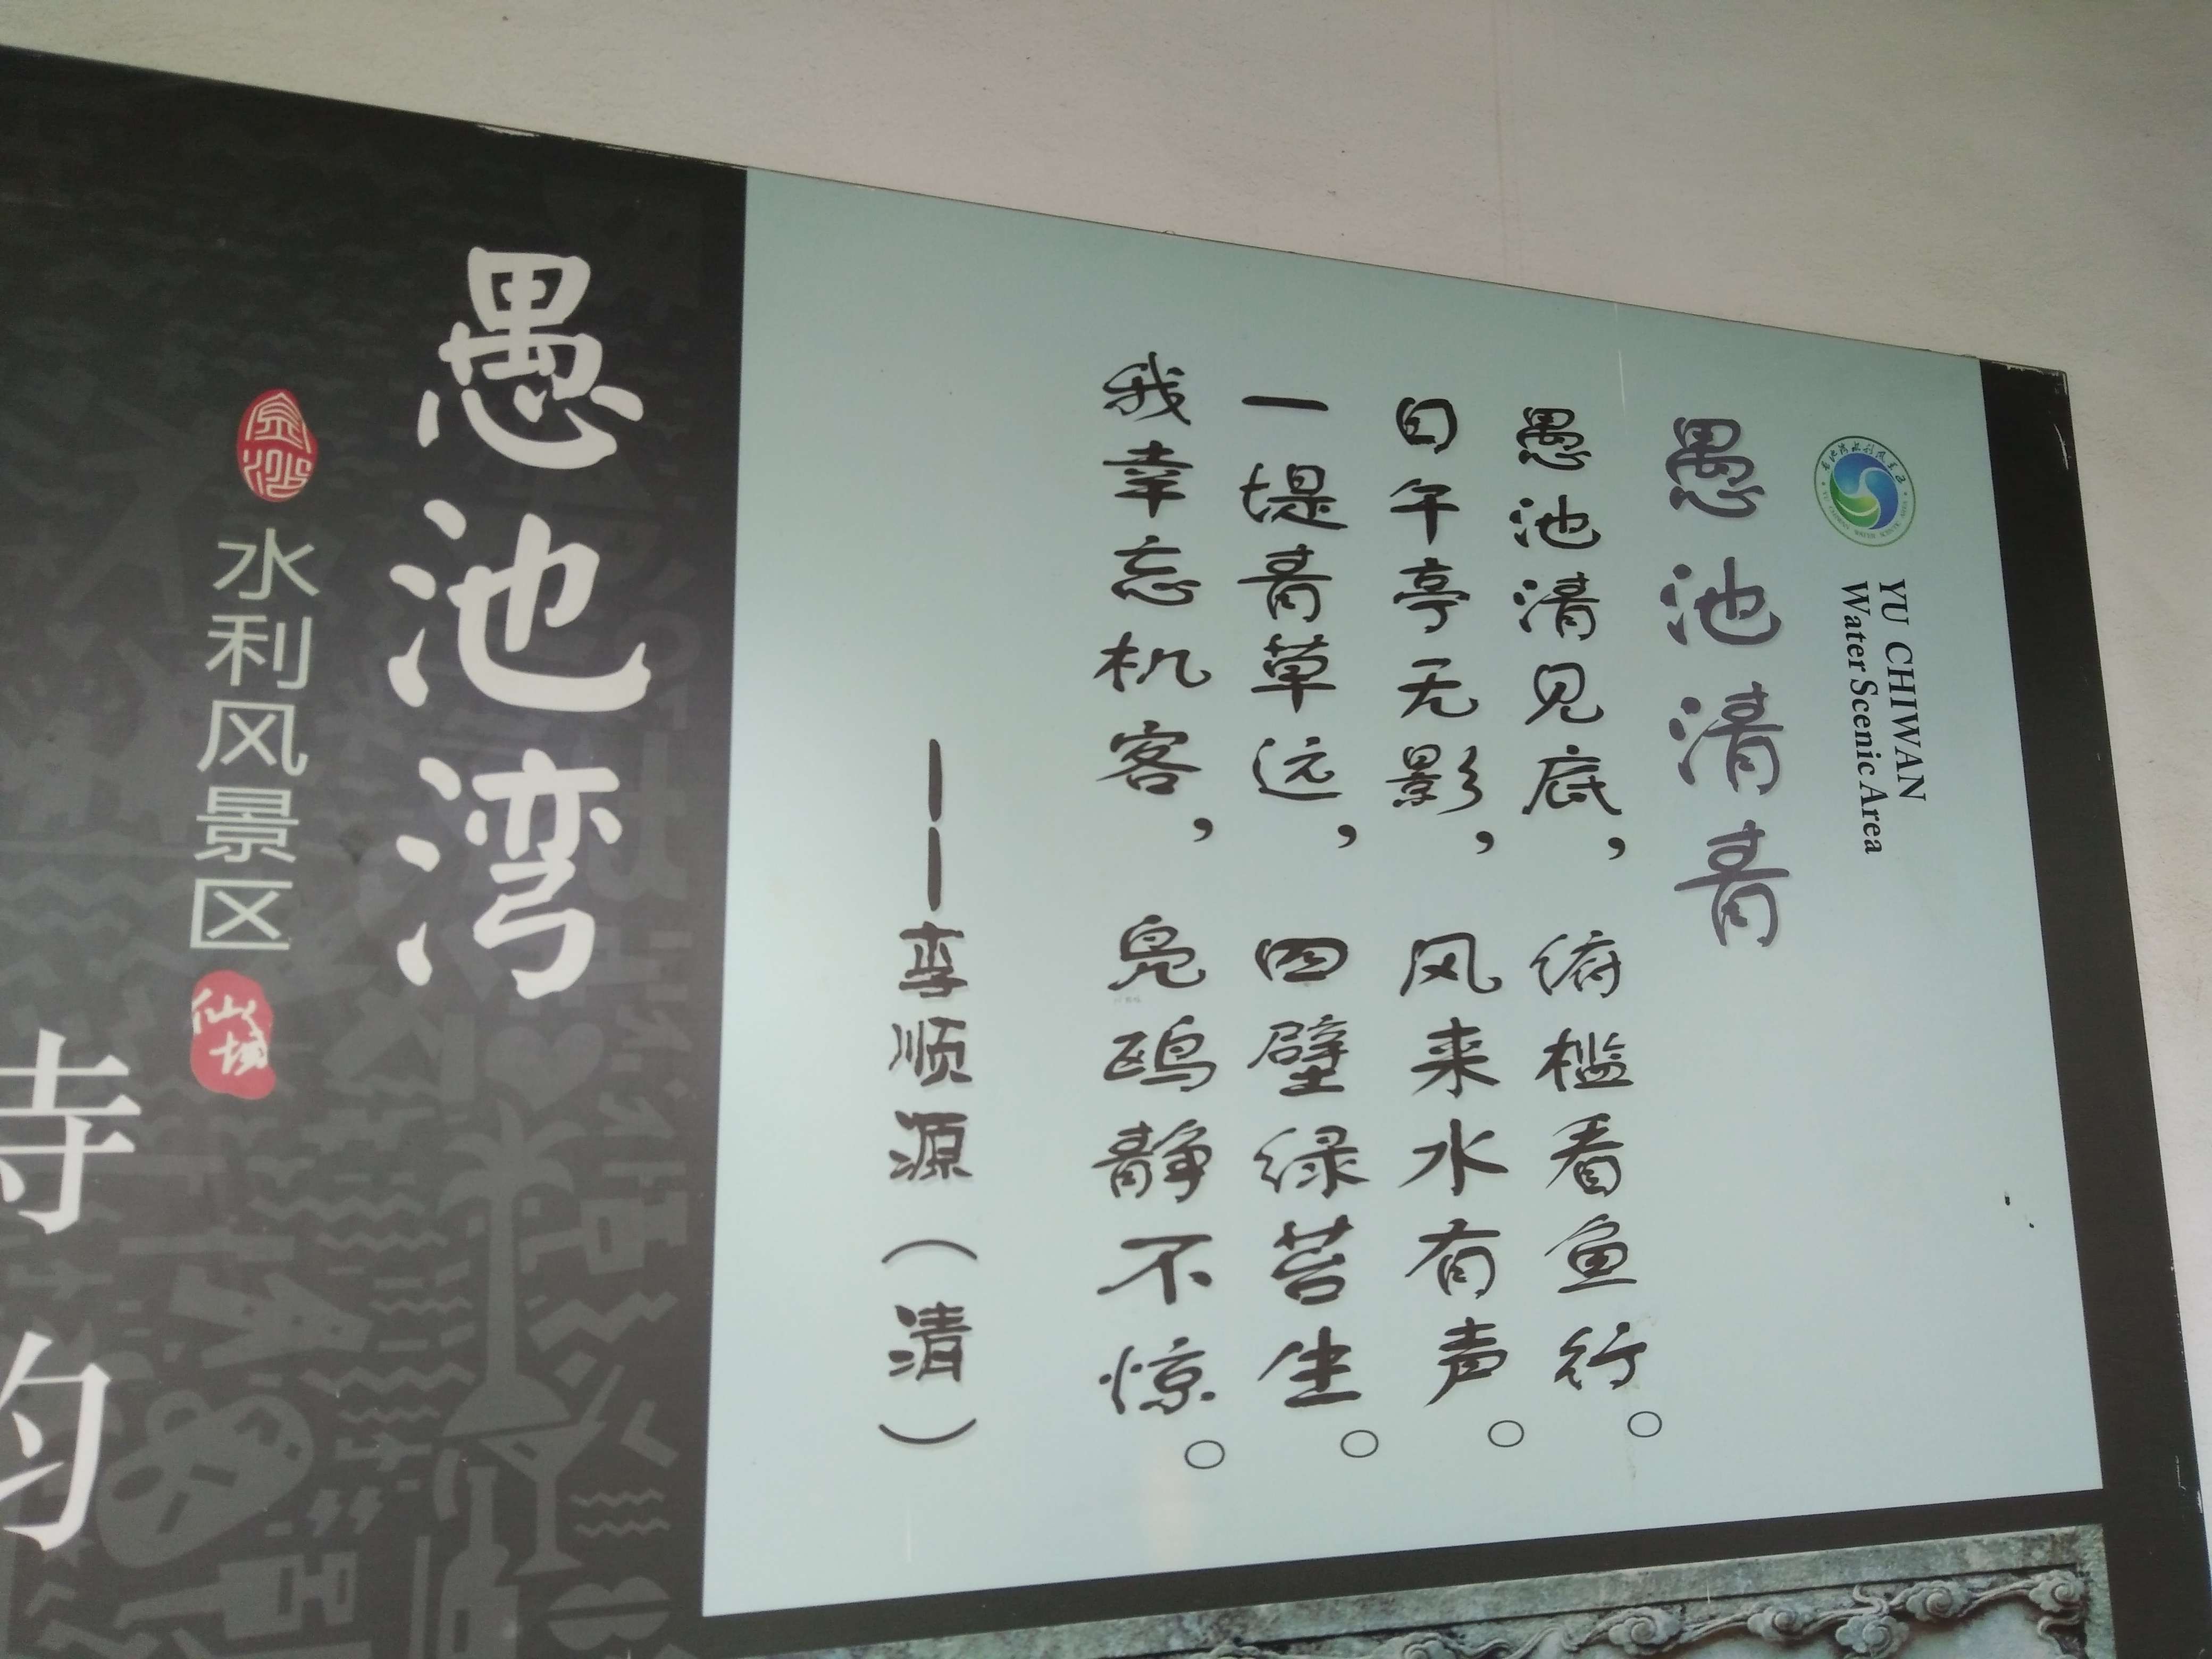 YU CHIWAN
Water Scenic Area
愚池清青
愚池清见底，俯槛看鱼行。
日午亭无影，风来水有声。
一堤青草远，四壁绿苔生。
我幸忘机客，凫鸥静不惊。
——李顺源（清）
愚池湾
金沙
水利风景区